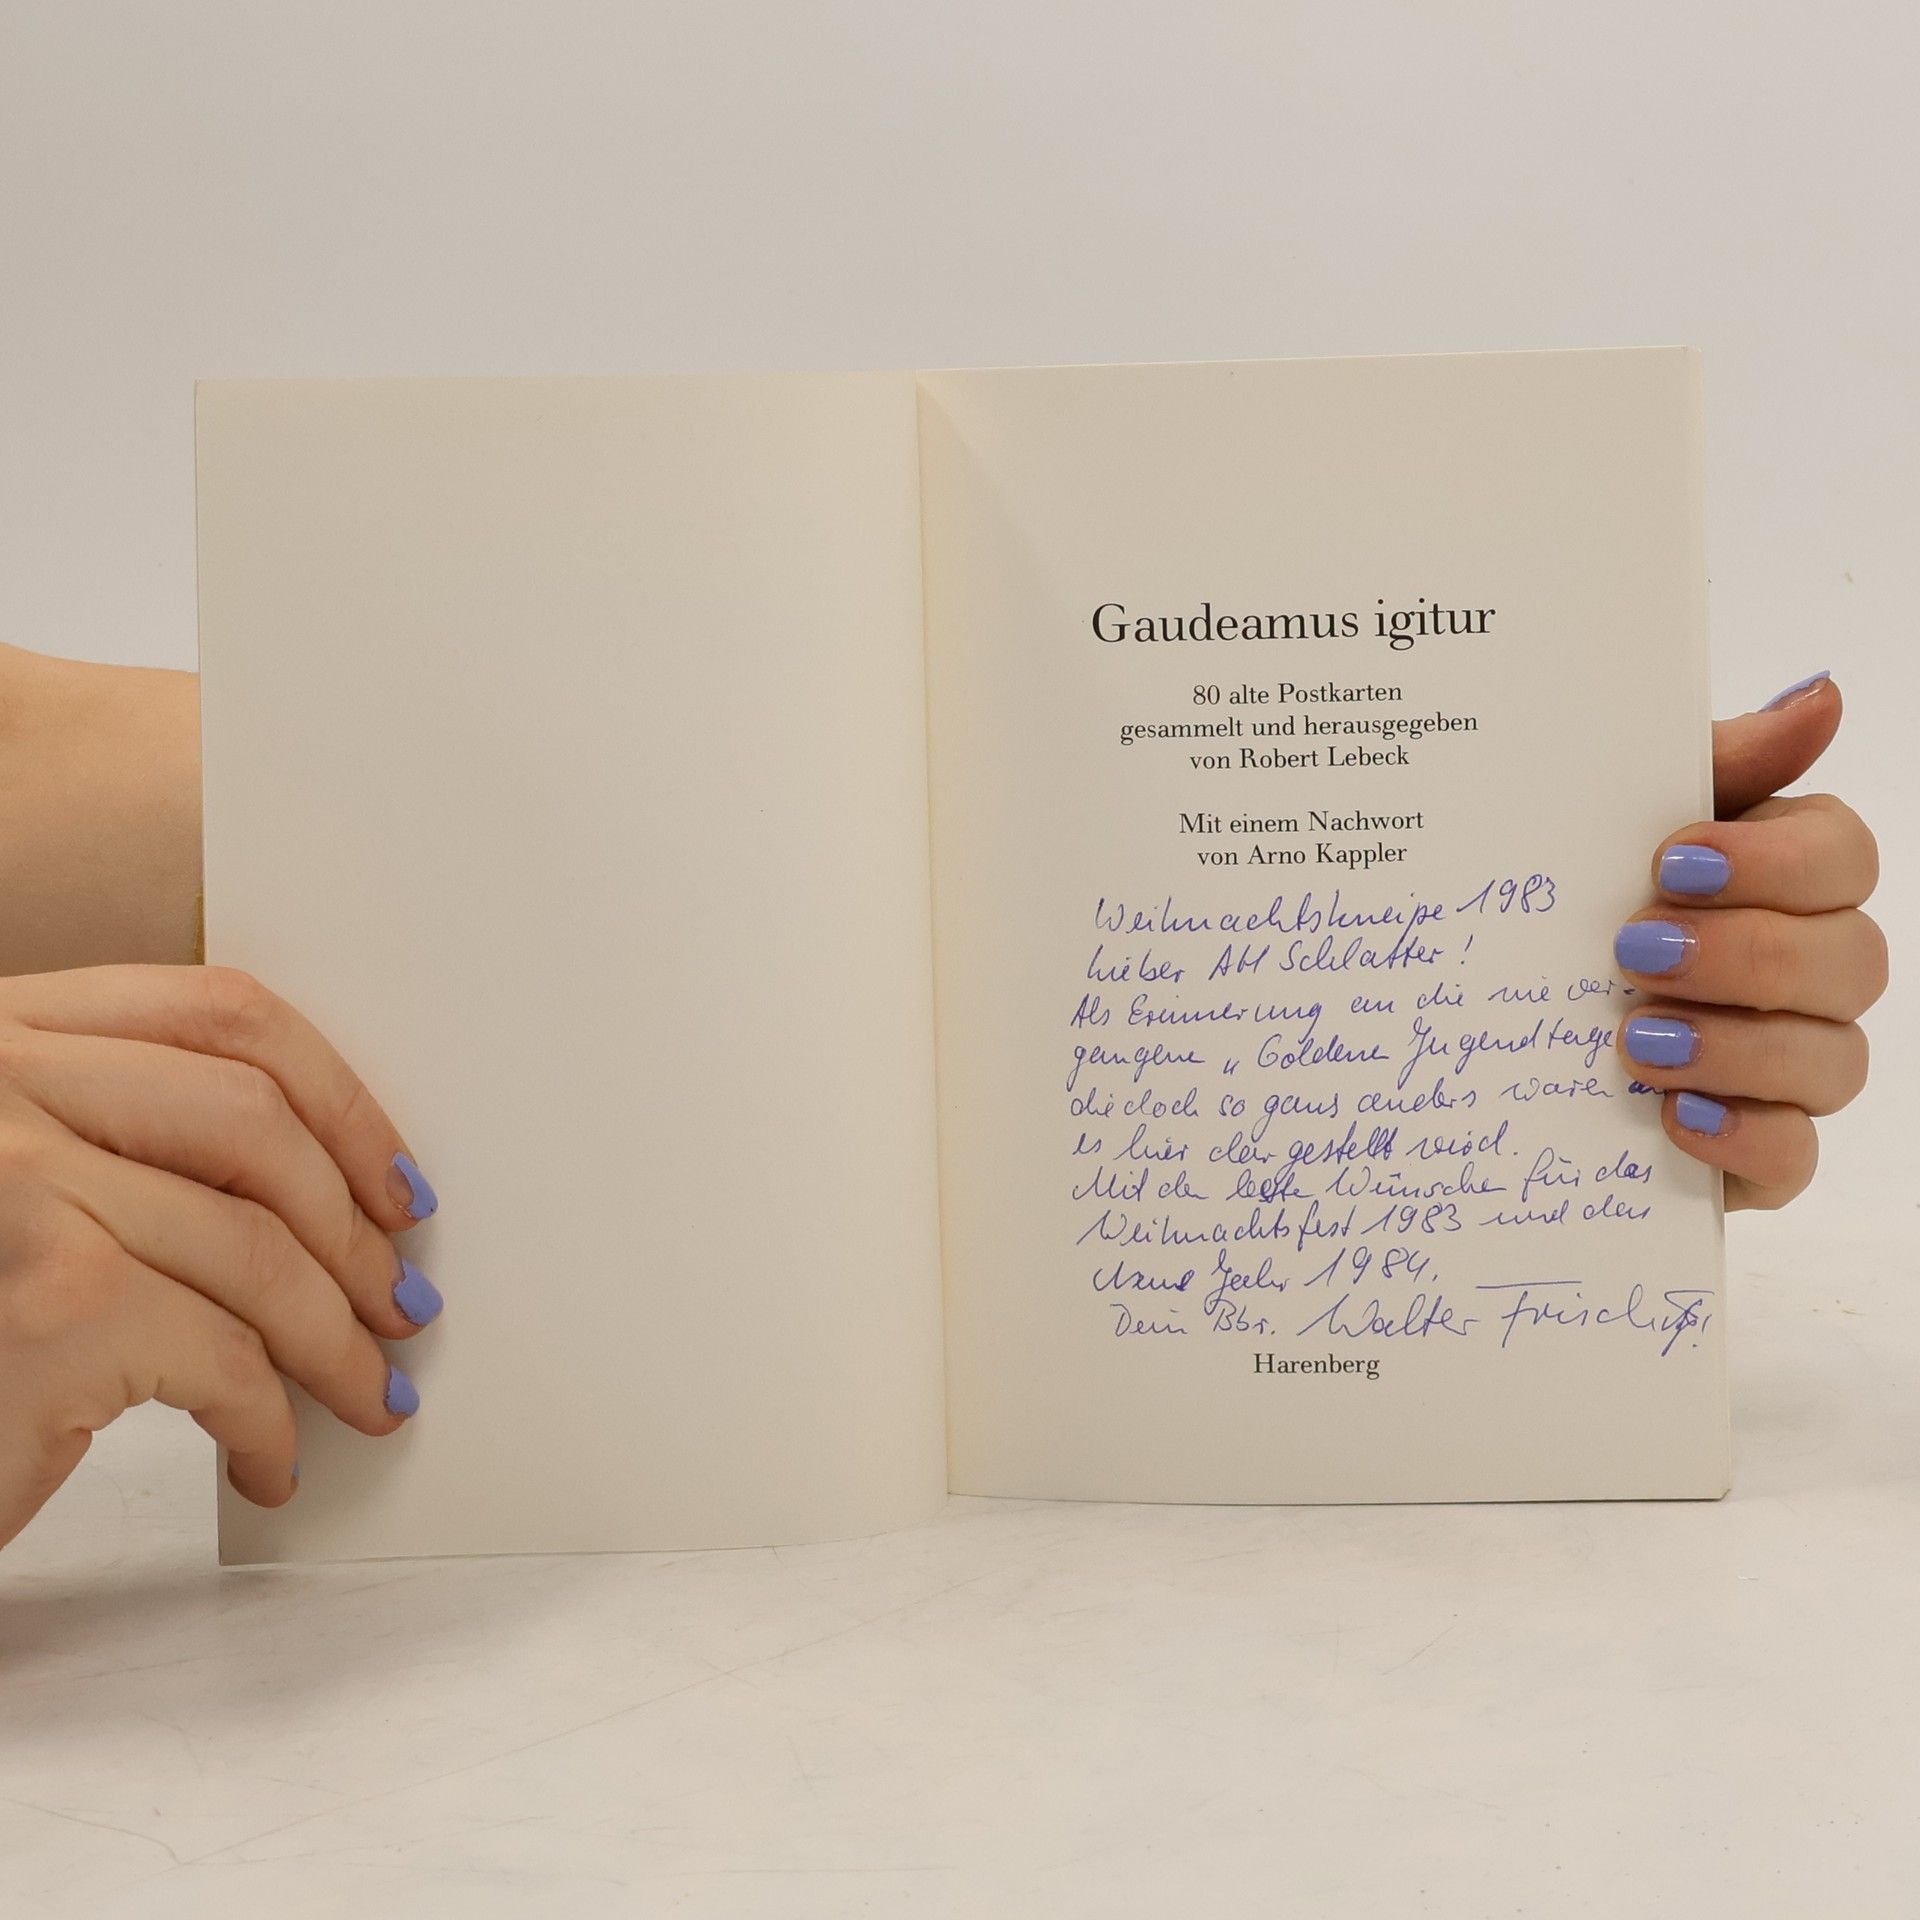 Gaudeamus igitur
80 alte Postkarten
gesammelt und herausgegeben
von Robert Lebeck
Mit einem Nachwort
von Arno Kappler
Weihnachtskneipe 1983
Lieber AH Schlatter!
Als Erinnerung an die nie ver-
gangene „Goldene Jugendtage
die doch so ganz anders waren
es hier dargestellt wird.
Mit den beste Wünsche für das
Weihnachtsfest 1983 und das
Neue Jahr 1984.
Dein Bbr. Walter Frisch
Harenberg